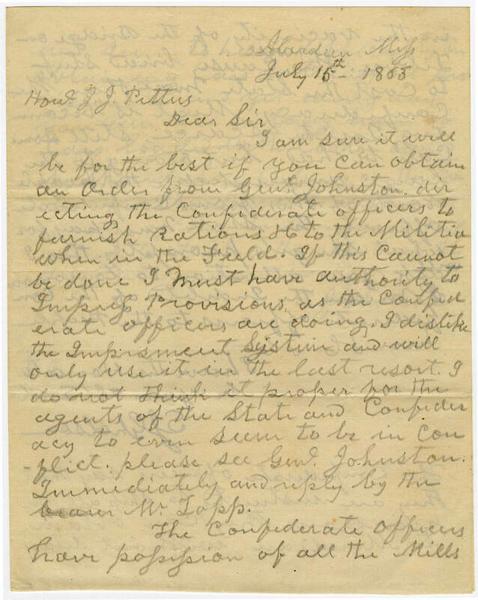 Aberdeen Miss
July 15th - 1863
Honl J. J. Pettus
Dear Sir
I am sure it will
be for the best if you can obtain
an Order from Genl Johnston, dir
ecting the Confederate officers to
furnish Rations &c to the Militia
when in the Field. If this cannot
be done I must have authority to
Impress Provisions, as the Confed
erate officers are doing. I dislike
the Impressment System and will
only use it in the last resort. I
do not think it proper for the
agents of the State and Confeder
acy to even seem to be in con
flict. please see Genl. Johnston.
Immediately and reply by the
bearer Mr Topp.
The Confederate Officers
have possession of all the Mills